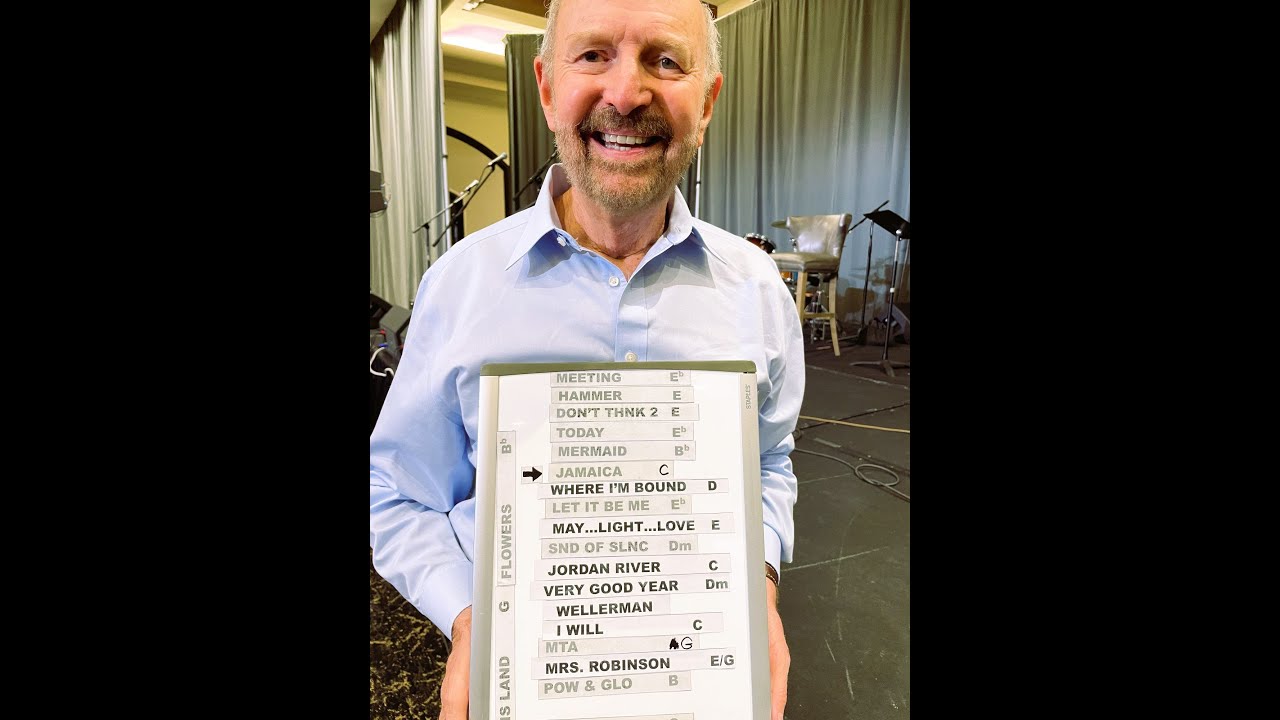 MEETING E♭
HAMMER E
DON'T THNK 2 E
TODAY E♭
MERMAID B♭
JAMAICA C
WHERE I'M BOUND D
LET IT BE ME E♭
MAY...LIGHT...LOVE E
SND OF SLNC Dm
JORDAN RIVER C
VERY GOOD YEAR Dm
WELLERMAN
I WILL C
MTA G
MRS. ROBINSON E/G
POW & GLO B
FLOWERS B♭
LAND G
STAPLES